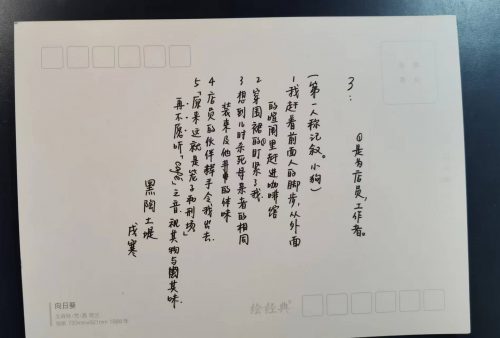 3：
①是为店员，工作者。
(第一人称记叙。小狗)
1 我赶着前面人的脚步，从外面
的喧闹里赶进咖啡馆
2 穿围裙的①盯紧了我。
3 想到儿时杀死母亲者的相同
装束及他的体味
4 店员的伙伴释手令我出去.
5「原来这就是笼子和刑场」
再不愿听，之音.视其物与其味.
黑陶土堤
戌寒
向日葵
绘经典